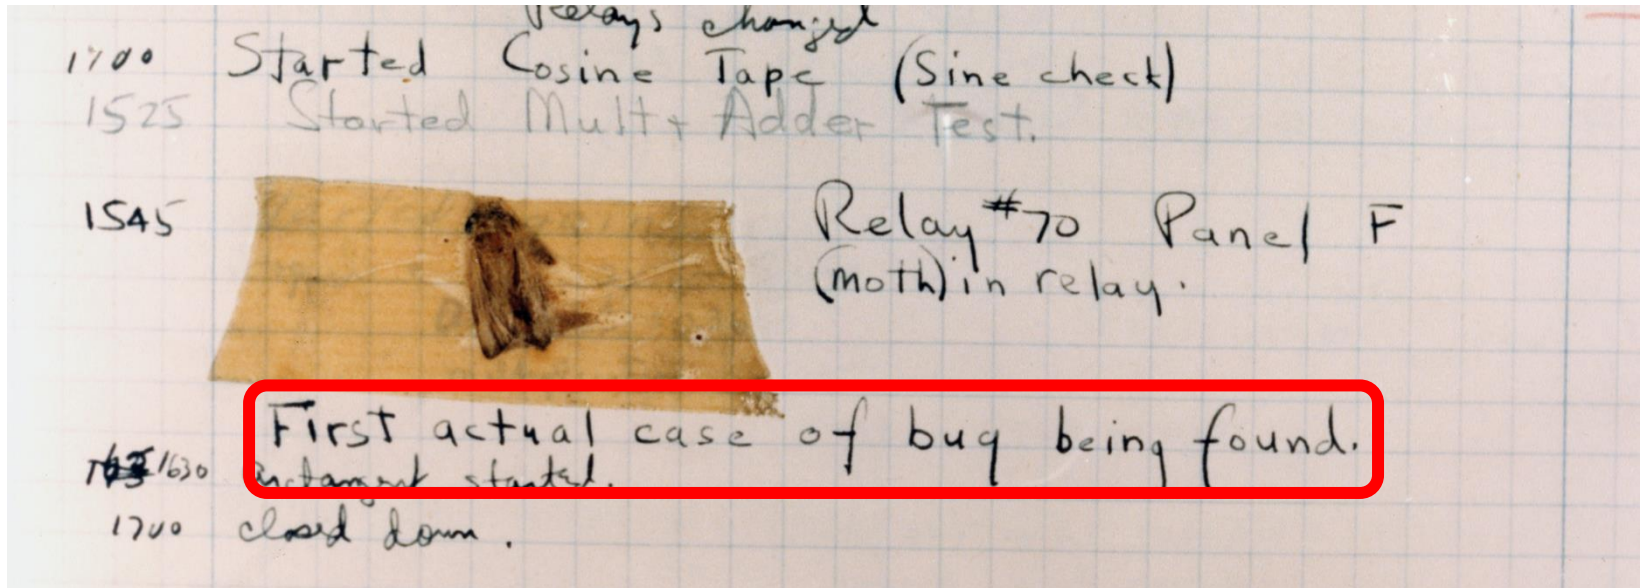 Relays changed
1700 Started Cosine Tape (Sine check)
1525 Started Mult + Adder Test.
1545 Relay #70 Panel F
(moth) in relay.
First actual case of bug being found.
1630 arctangent started.
1700 closed down.